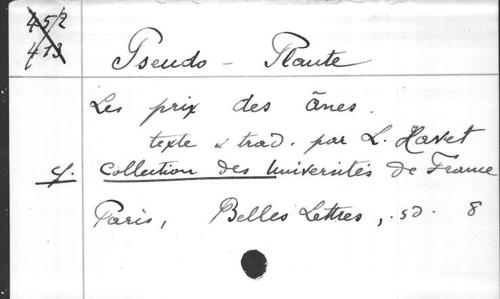 452
413
Pseudo - Plaute
Les prix des ânes.
texte & trad. par L. Havet
cf. Collection des Universités de France
Paris, Belles Lettres, . sd. 8